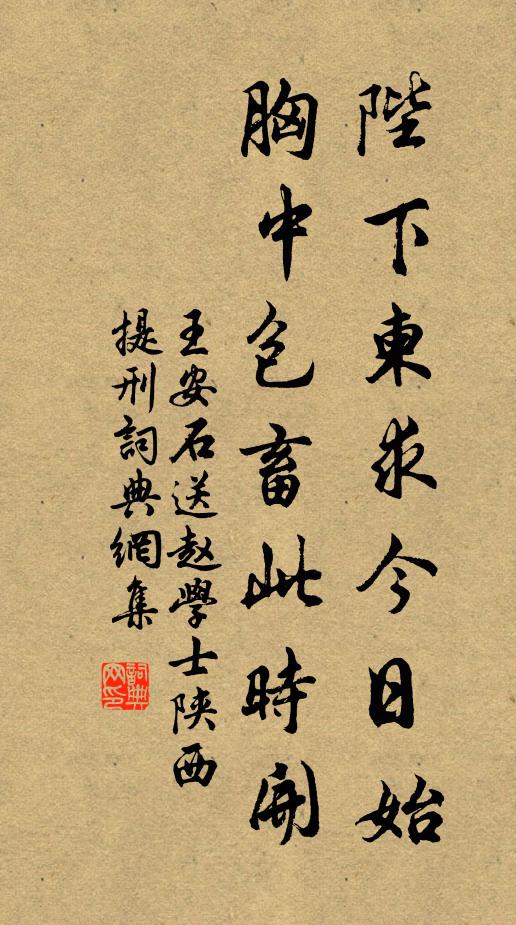 陛下東求今日始
胸中包畜此時開
王安石送赵學士陝西
提刑詞典網集
詞典網印